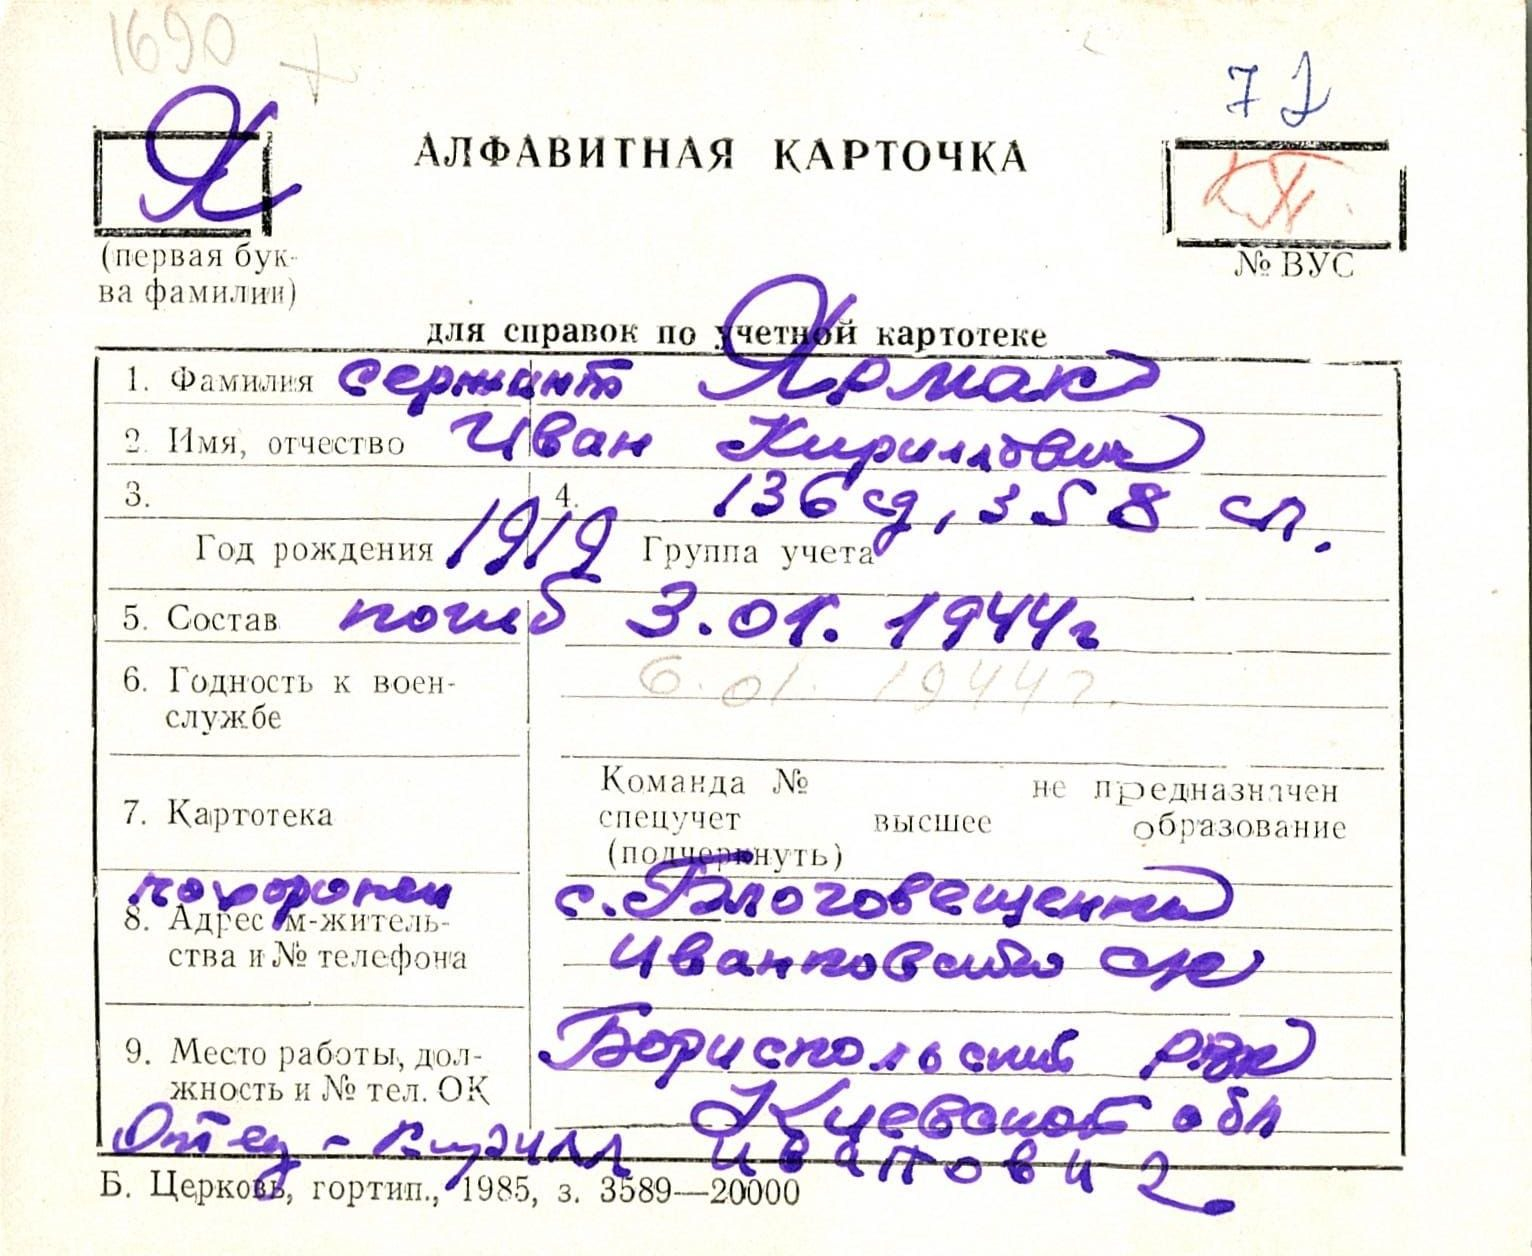 1690
Я
АЛФАВИТНАЯ КАРТОЧКА
(первая бук-
ва фамилии)
№ ВУС
для справок по учетной картотеке
1. Фамилия сержант Ярмак
2. Имя, отчество Иван Кириллович
3. 4. 136 сд, 358 сп.
Год рождения 1919 Группа учета
5. Состав погиб 3.01.1944г
6. Годность к воен-
службе
6.01.1944г.
7. Картотека
Команда № не предназначен
спецучет высшее образование
(подчеркнуть)
похоронен
8. Адрес м-житель-
ства и № телефона
с. Благовещенка
Иванковский с/с
9. Место работы, дол-
жность и № тел. ОК
Бориспольский р-н
Киевской обл
Отец - Кирилл Иванович
Б. Церковь, гортип., 1985, з. 3589—20000